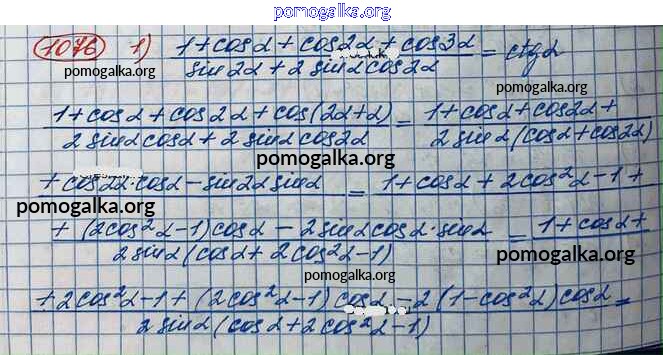 pomogalka.org
1076 1) (1+cosα+cos2α+cos3α)/(sin2α+2sinαcos2α) = ctgα
pomogalka.org
(1+cosα+cos2α+cos(2α+α))/(2sinαcosα+2sinαcos2α) = (1+cosα+cos2α+)/(2sinα(cosα+cos2α))
pomogalka.org
+cos2α·cosα−sin2αsinα = 1+cosα+2cos²α−1+
pomogalka.org
(+(2cos²α−1)cosα−2sinαcosα·sinα)/(2sinα(cosα+2cos²α−1)) = 1+cosα+
pomogalka.org
pomogalka.org
(+2cos²α−1+(2cos²α−1)cosα−2(1−cos²α)cosα)/(2sinα(cosα+2cos²α−1)) =
pomogalka.org